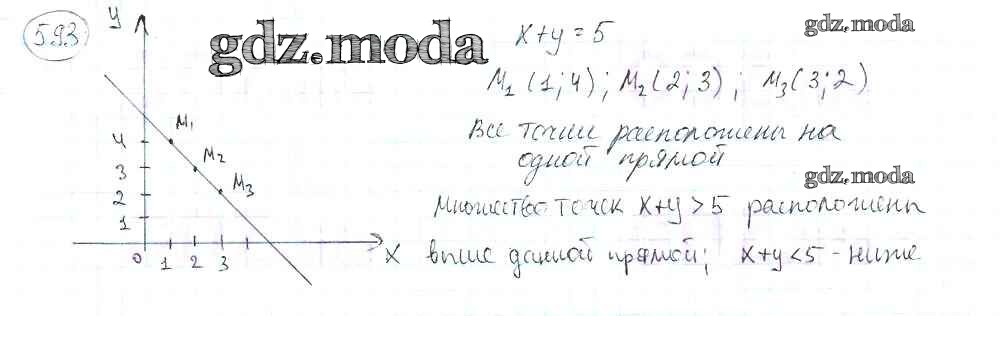 593.
gdz.moda
y
4
3
2
1
0
1 2 3
x
M₁
M₂
M₃
x+y=5
gdz.moda
M₁(1;4); M₂(2;3); M₃(3;2)
Все точки расположены на
одной прямой
gdz.moda
Множество точек x+y>5 расположены
выше данной прямой; x+y<5 - ниже